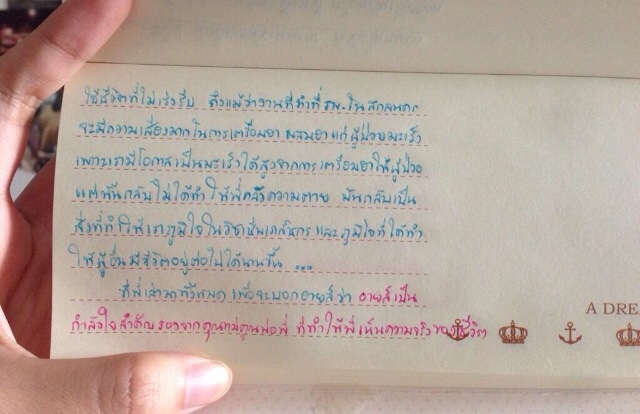 ใช้ชีวิตที่ไม่เร่งรีบ ถึงแม้ว่างานที่ทำที่ รพ. ในสกลนคร
จะมีความเสี่ยงมากในการเตรียมยา ผสมยาแก่ผู้ป่วยมะเร็ง
เพราะเรามีโอกาสเป็นมะเร็งได้สูงจากการเตรียมยาให้ผู้ป่วย
แต่นั่นกลับไม่ได้ทำให้พี่กลัวความตาย มันกลับเป็น
สิ่งที่ทำให้เราภูมิใจในวิชาชีพเภสัชกร และภูมิใจที่ได้ทำ
ให้ผู้อื่นมีชีวิตอยู่ต่อไปได้นานขึ้น ...
ที่พี่เล่ามาทั้งหมด เพื่อจะบอกอายส์ว่า อายส์เป็น
กำลังใจสำคัญรองจากคุณแม่คุณพ่อพี่ ที่ทำให้พี่เห็นความจริงของชีวิต
A DREA